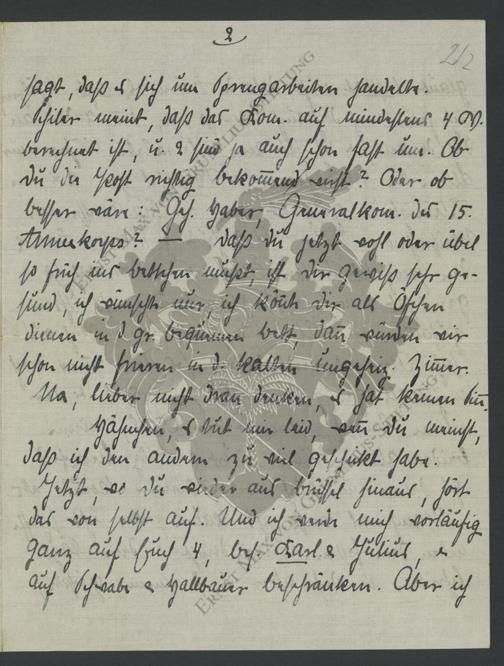 2
2/2
sagt, daß es sich um Sprengarbeiten handelte.
Schiler meint, daß das Kom. auf mindestens 4 W.
berechnet ist, u. 2 sind ja auch schon fast um. Ob
Du die Post richtig bekommend wirst? Oder ob
besser wäre: Geh. Haber, Generalkom. des 15.
Armeekorps? — Daß Du jetzt wohl oder übel
so früh ins Bettchen mußt, ist Dir gewiß sehr ge-
sund, ich wünschte nur, ich könnte Dir als Öfchen
dienen in d. gr. bequemen Bett, dann würden wir
schon nicht frieren in d. kalten ungeheiz. Zimmer.
Na, lieber nicht dran denken, es hat keinen Sinn.
Hähnchen, es tut mir leid, wenn Du meinst,
daß ich den andern zu viel geschickt habe.
Jetzt, wo Du wieder aus Brüssel hinaus, hört
das von selbst auf. Und ich werde mich vorläufig
ganz auf Euch 4, bes. Karl & Julius, &
auf Schwabe & Hallbauer beschränken. Aber ich
ERNST MAX VON GRUNELIUS-STIFTUNG
ERNST MAX VON GRUNELIUS-STIFTUNG